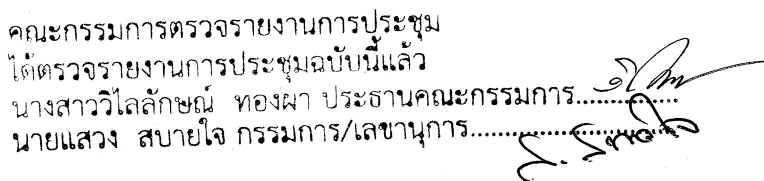 คณะกรรมการตรวจรายงานการประชุม
ได้ตรวจรายงานการประชุมฉบับนี้แล้ว
นางสาววิไลลักษณ์ ทองผา ประธานคณะกรรมการ...............
นายแสวง สบายใจ กรรมการ/เลขานุการ..............................